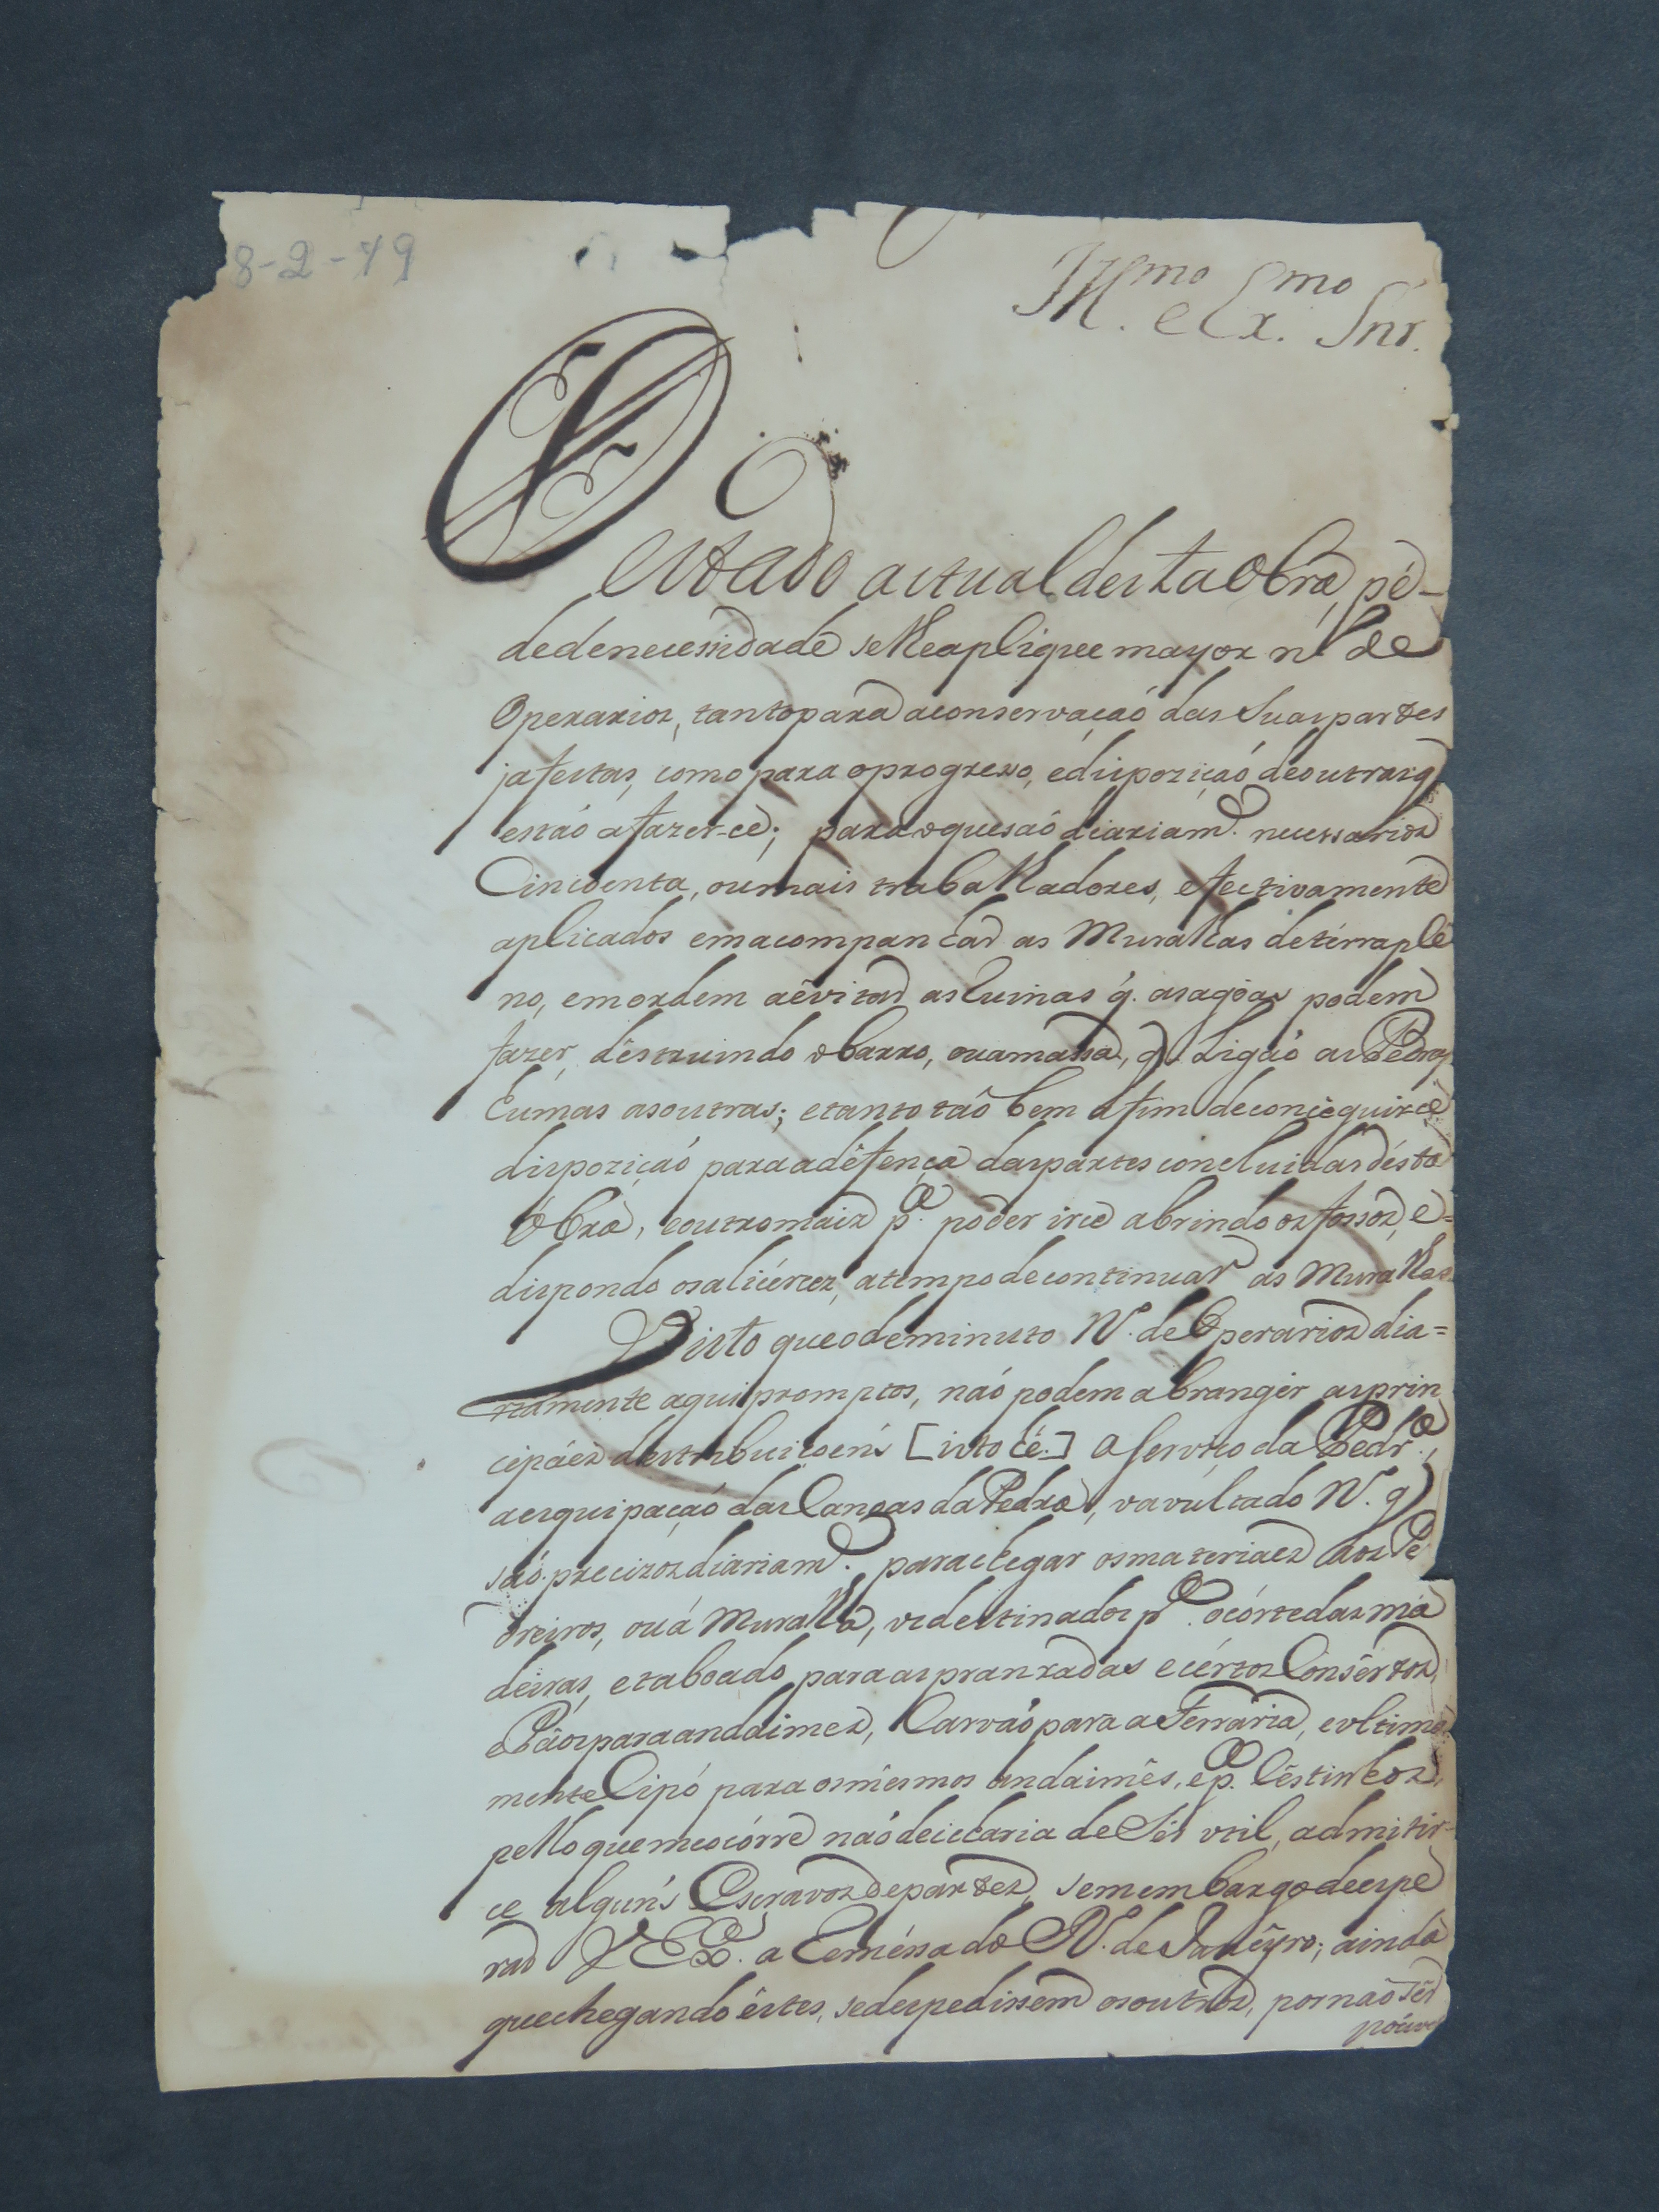 8-2-49
Ill.mo e Ex.mo Snr.
O
estado actual desta Obra, pé-
de de necessidade se lhe aplique mayor n.º de
Operarios, tanto para a conservaçaó das suas partes
ja feitas, como para o progresso, e dispoziçaó de outras q
estáo a fazer-ce; para o que saó diariam.e necessarios
Cincoenta, ou mais trabalhadores, efectivamente
aplicados em acompanhar as Muralhas de térraplé
no, em ordem a évitar as Ruinas q. as agoas podem
fazer, déstruindo o barro, ou a massa, q. Ligaó as Pedras
humas as outras; e tanto taó bem a fim de conceguir ce
dispoziçaó para a défença das partes concluidas désta
Obra, e outro mais p.a poder irce abrindo os fossos, e=
dispondo os alicérces, a tempo de continuar as Muralhas
Visto que o deminuto N.º de Operarios dia=
riamente aqui promptos, naó podem abrangér as prin
cipáes destribuiçoens [isto hé.] O Serviço da Pedr.a,
a esquipaçaó das Lanchas da Pedra, vavultado N.º q
saó precizos diariam.e para chegar os materiaes aos Pe
dreiros, ou á Muralha, os destinados p.a o córte das ma
deiras, e taboado para as pranxadas e cértos Consêrtos
e Páos para andaimes, Carváo para a Ferraria, e ultima
mente Cipó para os mésmos andaimés, e p.a Céstinhos,
pello que me ocórre naó deicharia de Sér util, admitir-
ce alguns Escravos de partes, sem embargo de espe
rar V Ex.a a Reméssa do R.º de Janéyro; ainda
que chegando éstes, se despedissem os outros, por naó sér